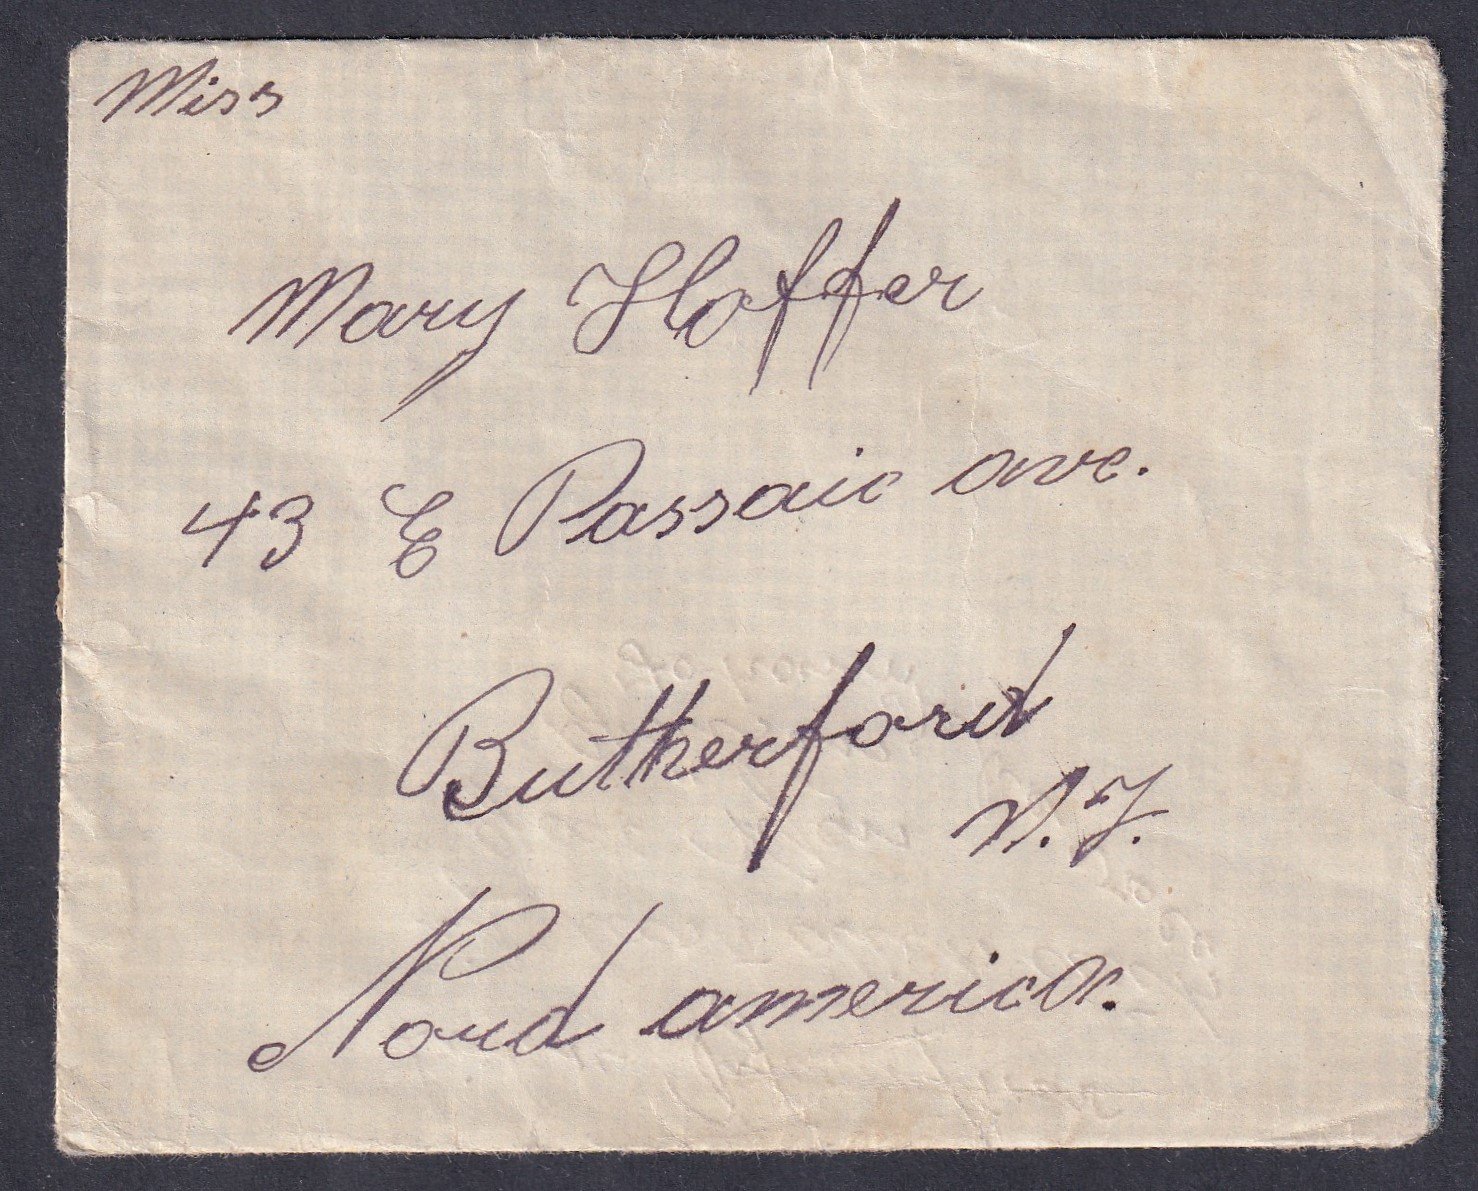 Miss
Mary Hoffer
43 E Passaic ave.
Butherford
N. J.
Nord america.